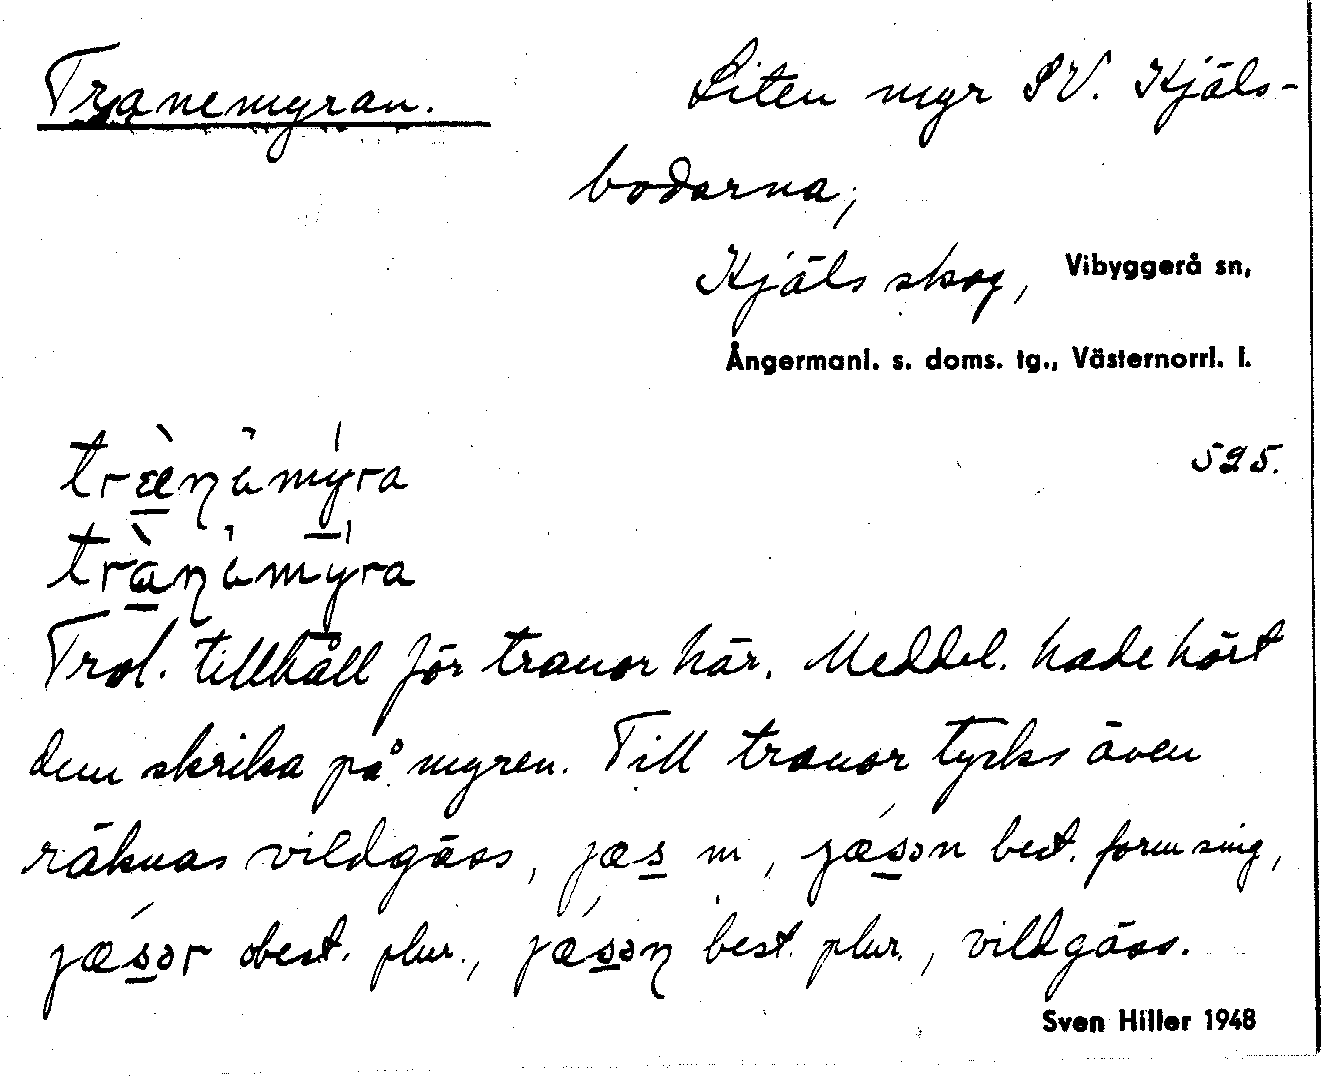 Tranemyran. Liten myr SV. Kjäls-
bodarna,
Kjäls skog, Vibyggerå sn,
Ångermanl. s. doms. tg., Västernorrl. l.
525.
Trol. tillhåll för tranor här. Meddel. hade hört
dem skrika på myren. Till tranor tycks även
räknas vildgäss, jæs m, jǽsən best. form sing,
jǽsər obest. plur., jǽsəŋ best. plur., vildgäss.
Sven Hiller 1948